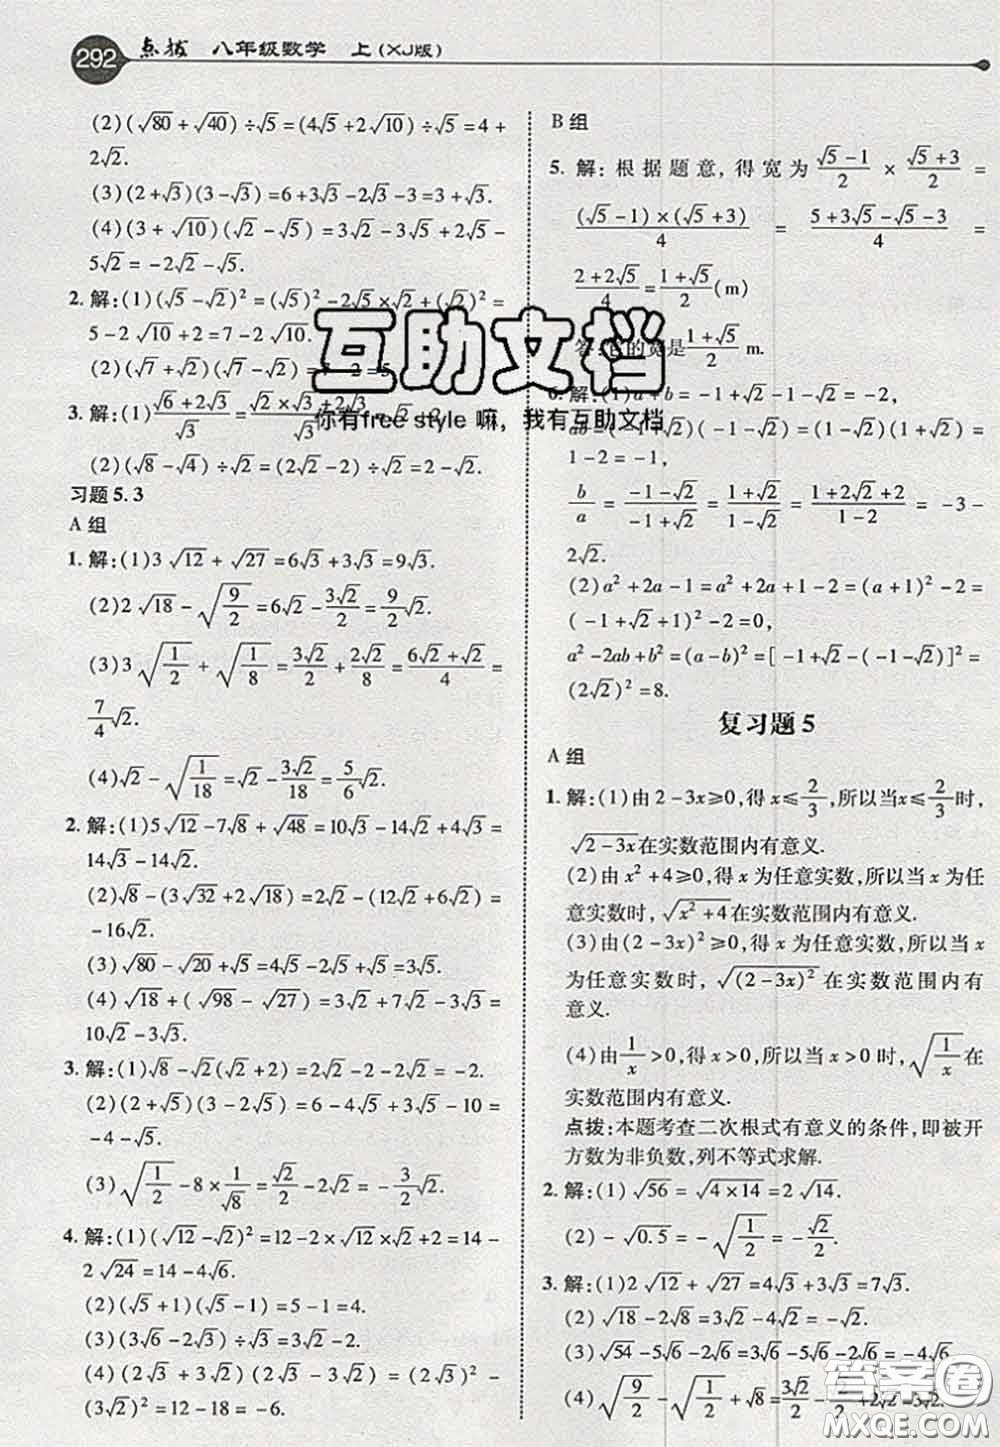 292 点拨 八年级数学 上(XJ版)
(2)(√80+√40)÷√5=(4√5+2√10)÷√5=4+
2√2.
(3)(2+√3)(3-√3)=6+3√3-2√3-3=3+√3.
(4)(3+√10)(√2-√5)=3√2-3√5+2√5-
5√2=-2√2-√5.
2.解:(1)(√5-√2)²=(√5)²-2√5×√2+(√2)²=
5-2√10+2=7-2√10.
(2)(√7+√2)(√7-√2)=7-2=5.
3.解:(1)(√6+2√3)/√3=(√2×√3+2√3)/√3=√2+2.
(2)(√8-√4)÷√2=(2√2-2)÷√2=2-√2.
习题5.3
A组
1.解:(1)3√12+√27=6√3+3√3=9√3.
(2)2√18-√(9/2)=6√2-3√2/2=9/2√2.
(3)3√(1/2)+√(1/8)=3√2/2+2√2/8=(6√2+√2)/4=
7/4√2.
(4)√2-√(1/18)=√2-3√2/18=5/6√2.
2.解:(1)5√12-7√8+√48=10√3-14√2+4√3=
14√3-14√2.
(2)√8-(3√32+2√18)=2√2-(12√2+6√2)=
-16√2.
(3)√80-√20+√5=4√5-2√5+√5=3√5.
(4)√18+(√98-√27)=3√2+7√2-3√3=
10√2-3√3.
3.解:(1)√8-√2(√2+2)=2√2-2-2√2=-2.
(2)(2+√5)(3-2√5)=6-4√5+3√5-10=
-4-√5.
(3)√(1/2)-8×1/√8=√2/2-2√2=-3√2/2.
4.解:(1)(√12-√2)²=12-2×√12×√2+2=14-
2√24=14-4√6.
(2)(√5+1)(√5-1)=5-1=4.
(3)(3√6-2√3)÷√3=3√2-2.
(4)(2√3+3√2)(2√3-3√2)=(2√3)²-
(3√2)²=12-18=-6.
B组
5.解:根据题意,得宽为(√5-1)/2×(√5+3)/2=
(√5-1)×(√5+3)/4=(5+3√5-√5-3)/4=
(2+2√5)/4=(1+√5)/2(m)
答:它的宽是(1+√5)/2 m.
6.解:(1)a+b=-1+√2-1-√2=-2,
ab=(-1+√2)(-1-√2)=(1-√2)(1+√2)=
1-2=-1,
b/a=(-1-√2)/(-1+√2)=(1+√2)/(1-√2)=(1+2√2+2)/(1-2)=-3-
2√2.
(2)a²+2a-1=a²+2a+1-2=(a+1)²-2=
(-1+√2+1)²-2=0,
a²-2ab+b²=(a-b)²=[-1+√2-(-1-√2)]²=
(2√2)²=8.
复习题5
A组
1.解:(1)由2-3x≥0,得x≤2/3,所以当x≤2/3时,
√(2-3x)在实数范围内有意义.
(2)由x²+4≥0,得x为任意实数,所以当x为任
意实数时,√(x²+4)在实数范围内有意义.
(3)由(2-3x)²≥0,得x为任意实数,所以当x
为任意实数时,√(2-3x)²在实数范围内有
意义.
(4)由1/x>0,得x>0,所以当x>0时,√(1/x)在
实数范围内有意义.
点拨:本题考查二次根式有意义的条件,即被开
方数为非负数,列不等式求解.
2.解:(1)√56=√(4×14)=2√14.
(2)-√0.5=-√(1/2)=-√2/2.
3.解:(1)2√12+√27=4√3+3√3=7√3.
(2)√18-2√8=3√2-4√2=-√2.
(3)√54-5√6-2√6=3√6-5√6-2√6=-4√6.
(4)√(9/2)-√(1/2)+√8=3√2/2-
互助文档
你有free style 嘛，我有互助文档
答案圈
MXQE.COM